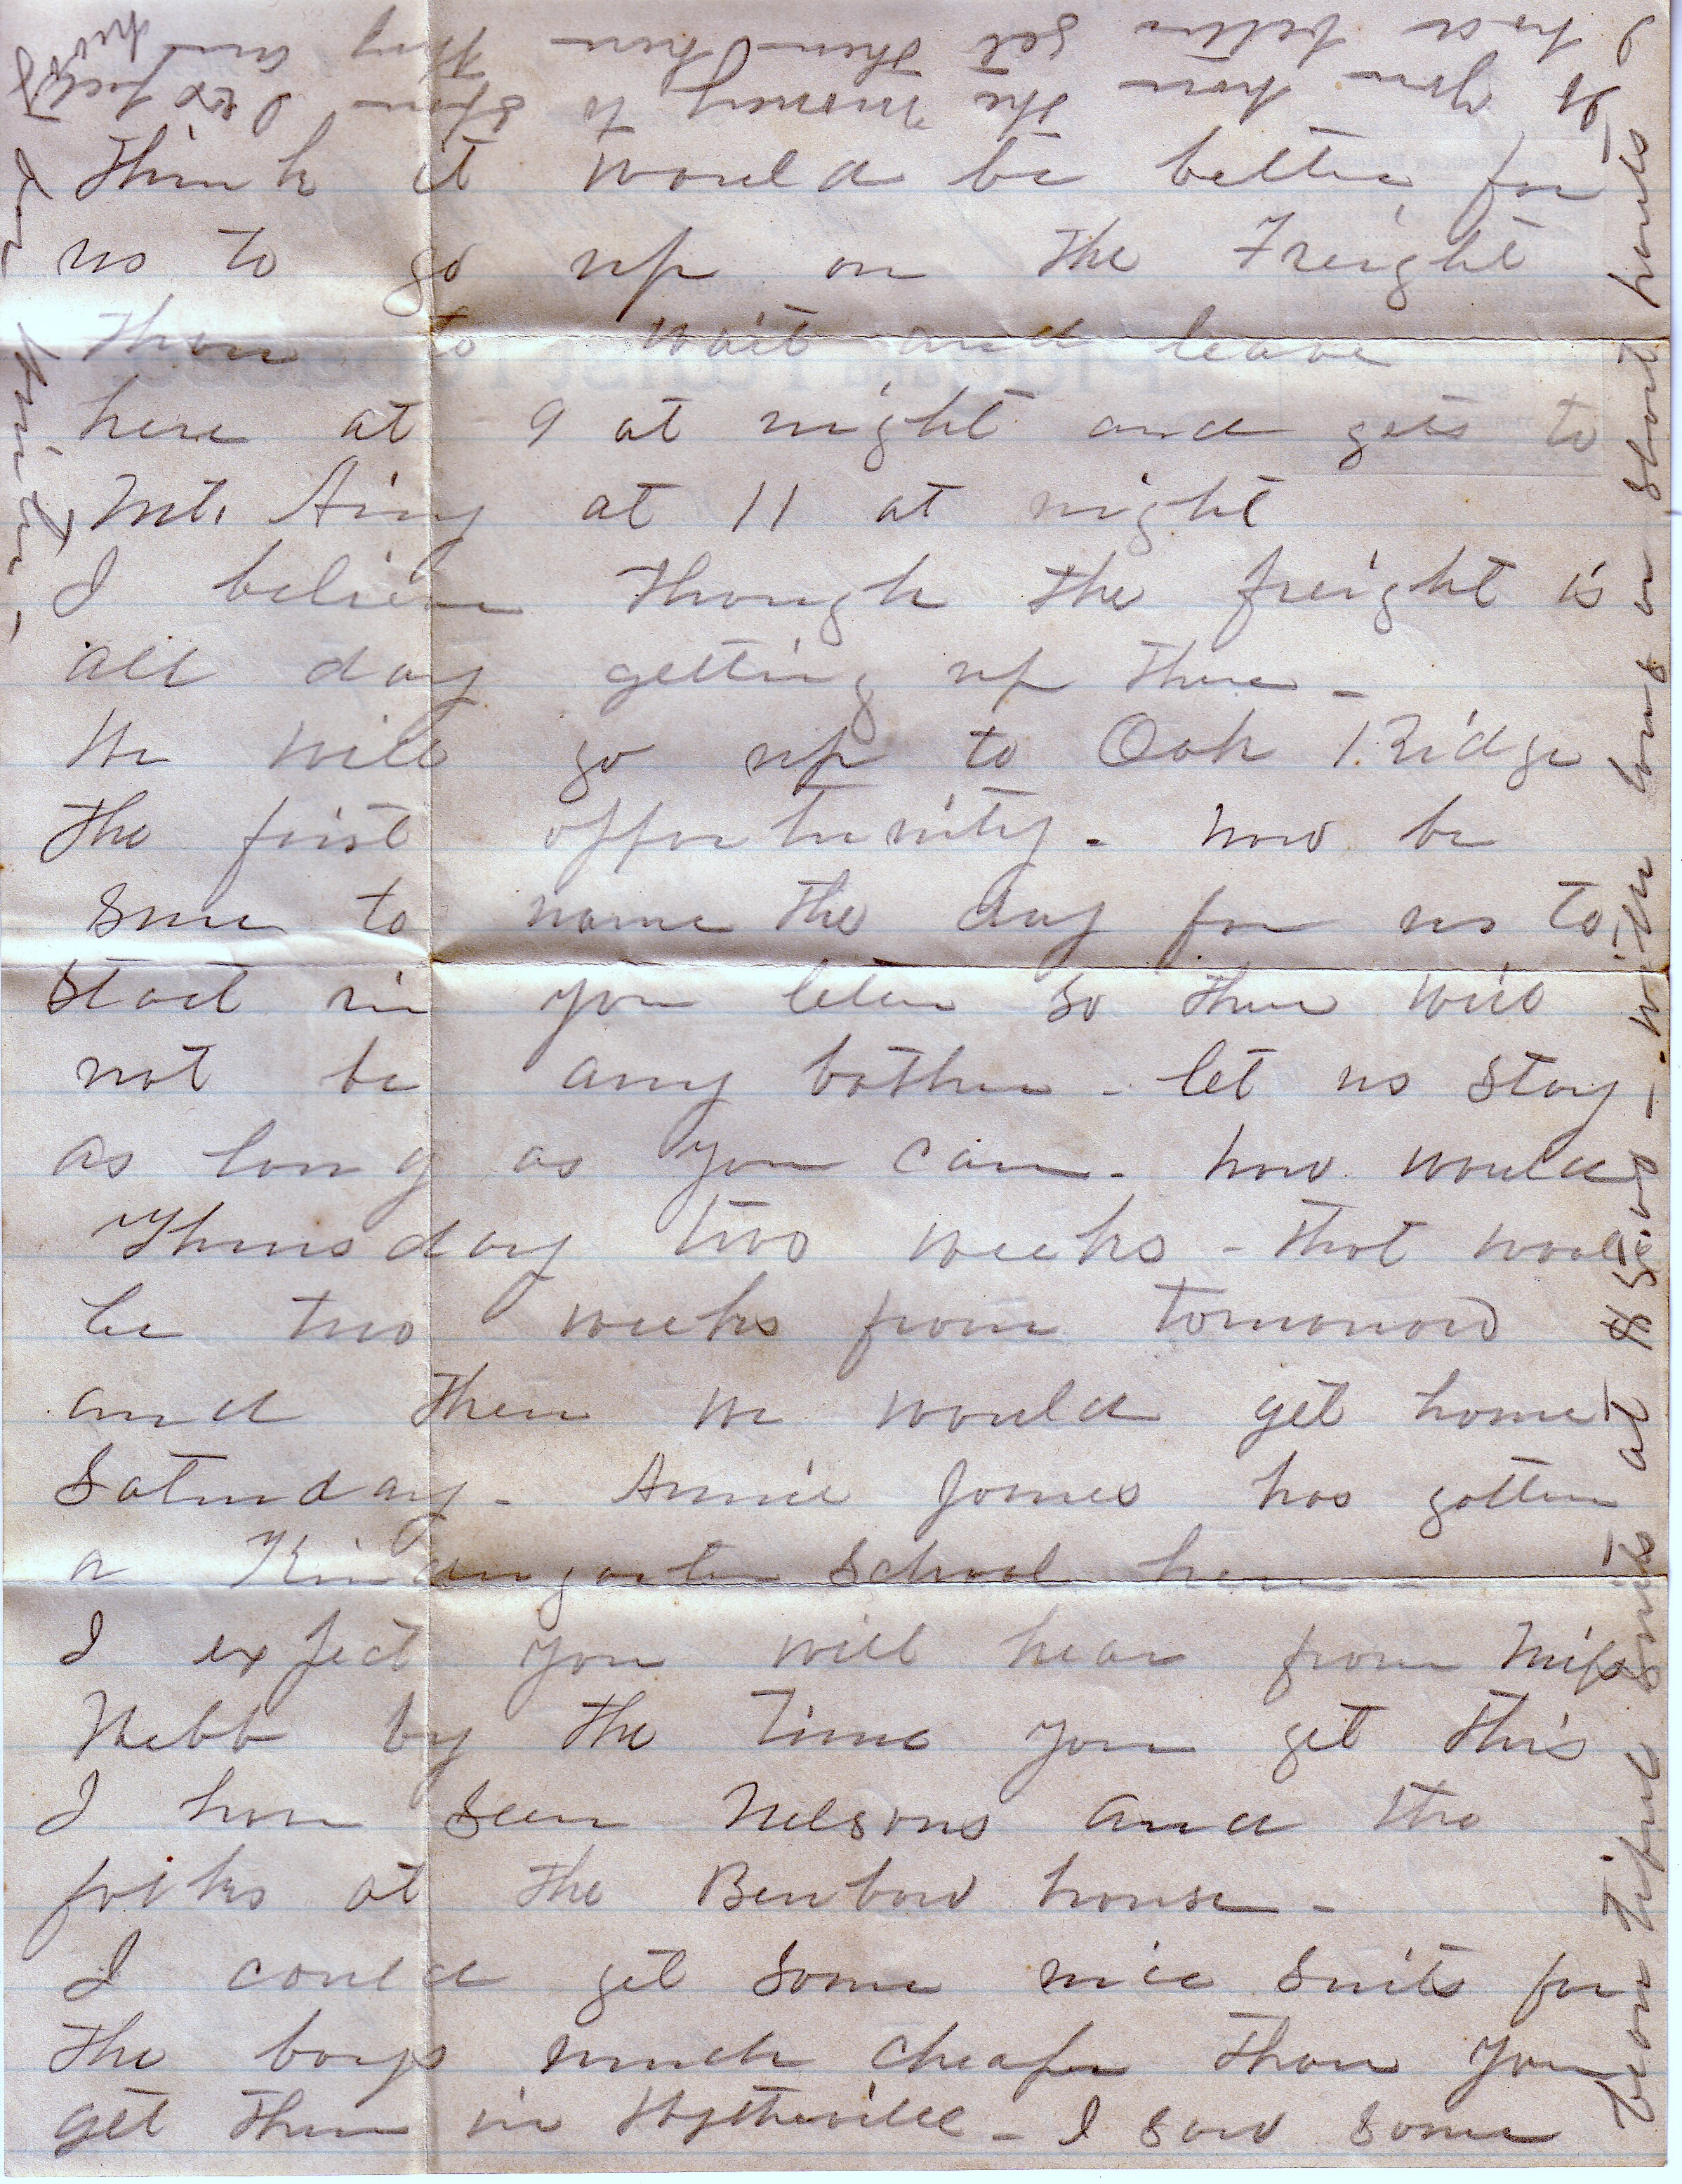 think it would be better for
us to go up on the Freight
than to wait and leave
here at 9 at night and gets to
Mt. Airy at 11 at night
I believe though the freight is
all day getting up there -
We will go up to Oak Ridge
the first oppertunity - Now be
sure to name the day for us to
start in your letter so there will
not be any bother - let us stay
as long as you can - how would
Thursday two weeks - that would
be two weeks from tomorrow
and then we would get home
Saturday - Annie Jones has gotten
a Kindergarten School here -
I expect you will hear from Miss
Webb by the time you get this
I have seen Nelsons and the
folks at the Benbow house -
I could get some nice suits for
the boys much cheaper than you
get them in Wytheville - I saw some
beautiful suits at $5.00 - with long or short pants
If you have the money to spare I expect
I had better get them here they are